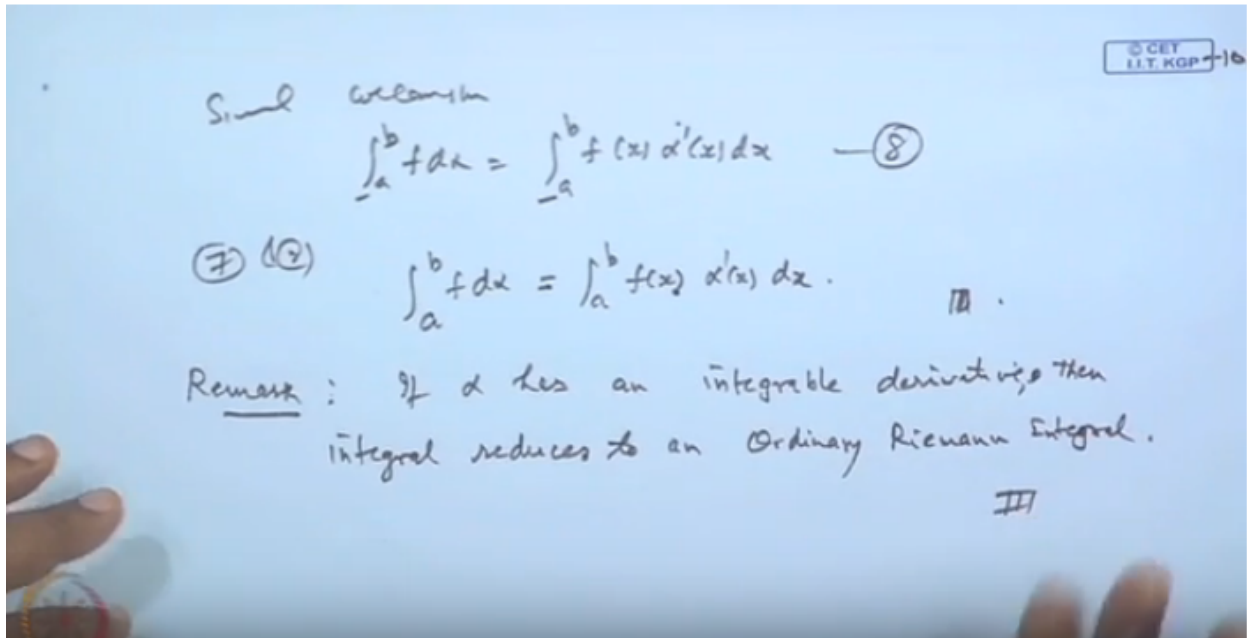 © CET
I.I.T. KGP
∫_a^b f dα = ∫_a^b f(x) α'(x) dx —⑧
⑦
∫_a^b f dα = ∫_a^b f(x) α'(x) dx.
Remark: If α has an integrable derivative, then
integral reduces to an Ordinary Riemann Integral.